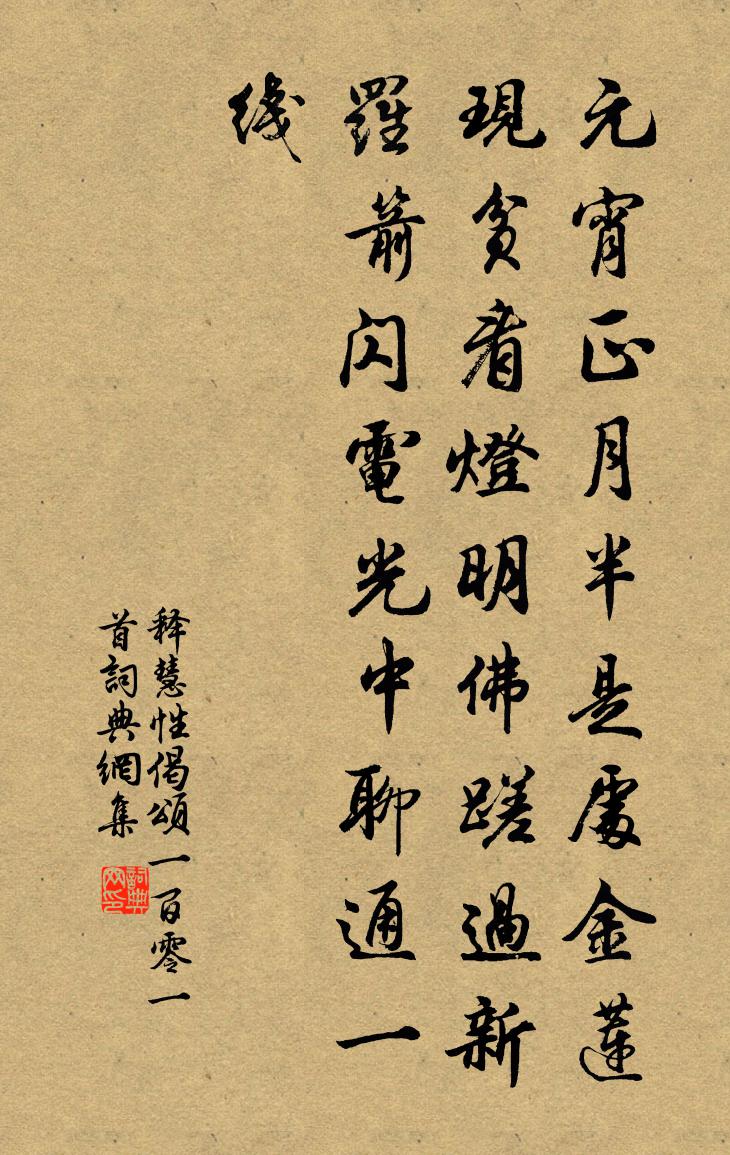 元宵正月半是處金蓮
現貪看燈明佛蹉過新
羅箭闪電光中聊通一
綫
释慧性偈頌一百零一
首詞典網集
詞典
网印